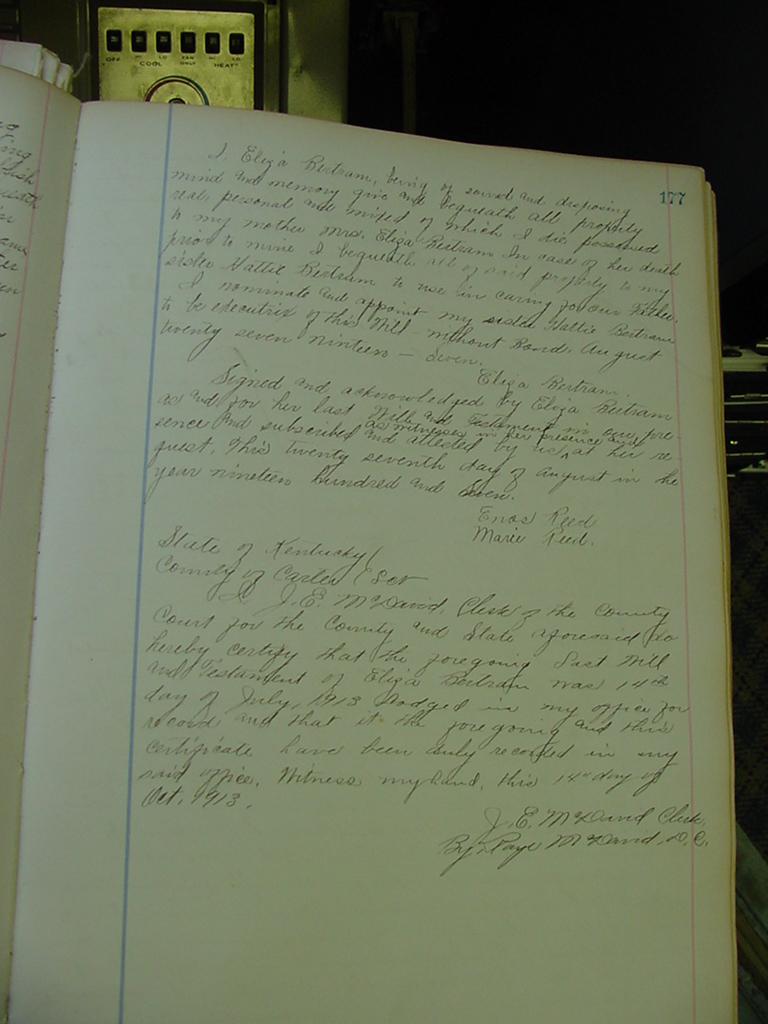 OFF HI LO FAN ONLY HI LO
COOL HEAT
177
I, Eliza Bertram, being of sound and disposing
mind and memory give and bequeath all property
real, personal and mixed of which I die possessed
to my mother Mrs. Eliza Bertram. In case of her death
prior to mine I bequeath all of said property to my
sister Hattie Bertram to use in caring for our Father.
I nominate and appoint my sister Hattie Bertram
to be executrix of this Will without Bond. August
twenty seven nineteen – seven.
Eliza Bertram.
Signed and acknowledged by Eliza Bertram
as and for her last Will and Testament in our pre-
sence and subscribed and attested by us, as witnesses in her presence and at her re
quest. This twenty seventh day of August in the
year nineteen hundred and seven.
Enos Reed
Marie Reed.
State of Kentucky (
County of Carter ( Sct
I, J. E. McDavid, Clerk of the County
Court for the County and State aforesaid do
hereby certify that the foregoing Last Will
and Testament of Eliza Bertram was 14th
day of July, 1913 lodged in my office for
record and that it the foregoing and this
certificate have been duly recorded in my
said office. Witness my hand, this 14th day of
Oct. 1913.
J. E. McDavid Clerk
By McDavid, D. C.